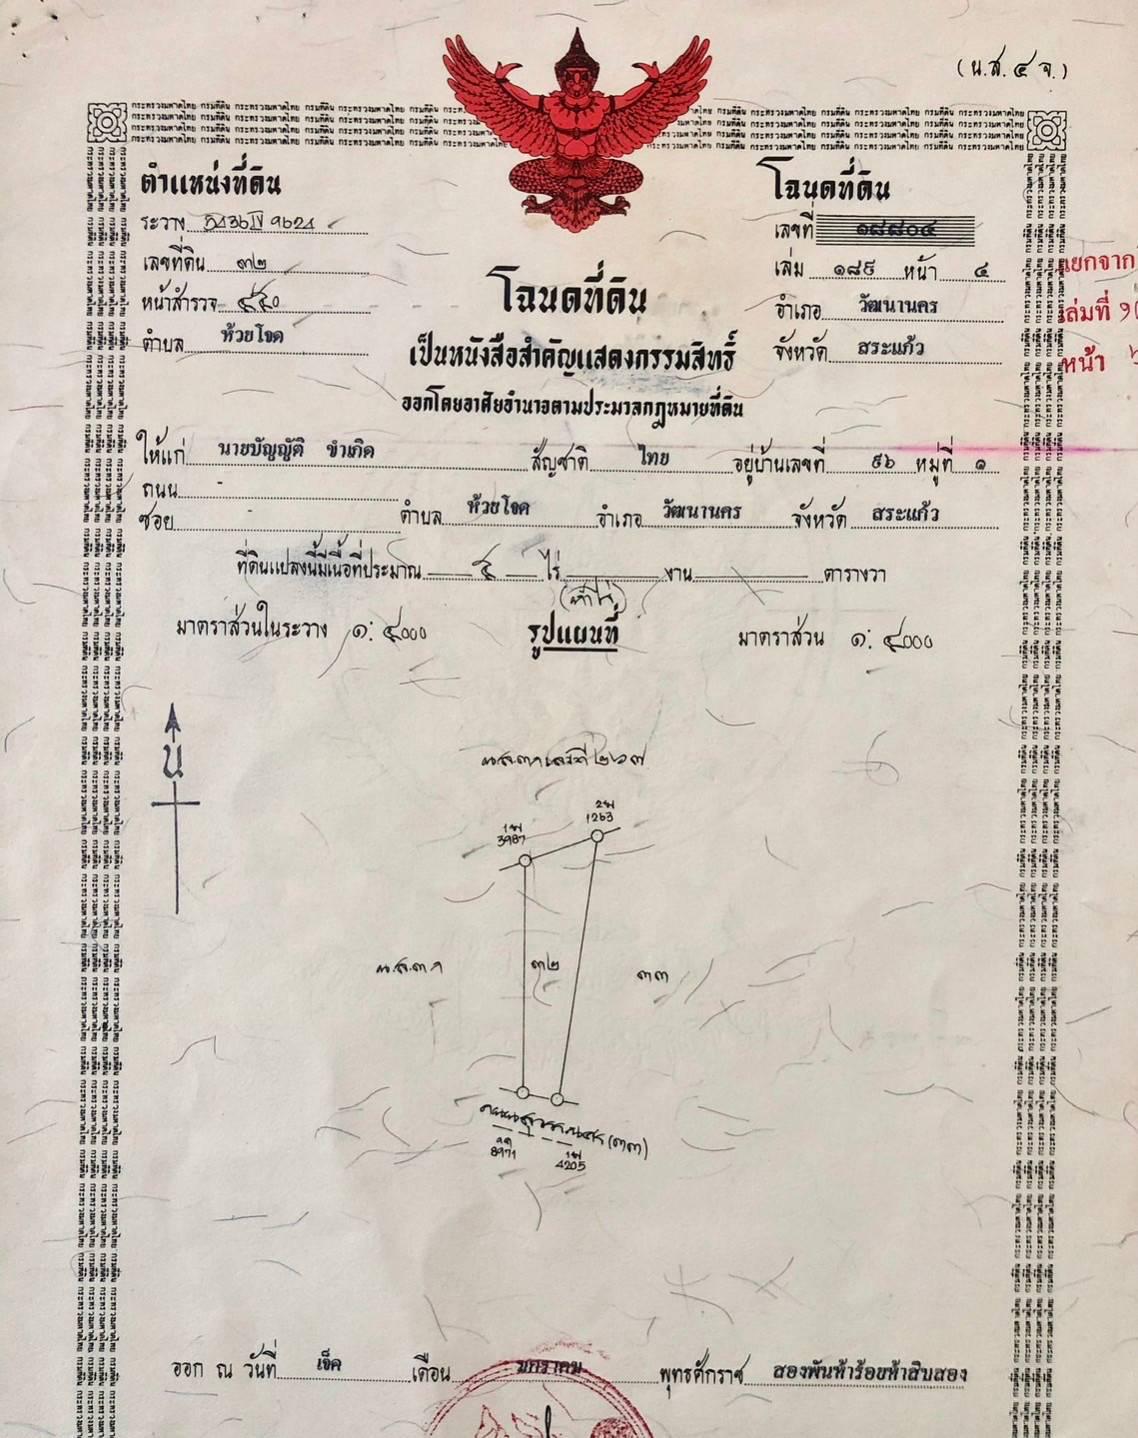 (น.ส.๔ จ.)
ตำแหน่งที่ดิน
ระวาง 5436 IV 9624
เลขที่ดิน ๓๒
หน้าสำรวจ
ตำบล ห้วยโจด
โฉนดที่ดิน
เลขที่ ๑๘๘๐๔
เล่ม ๑๘๙ หน้า ๔
อำเภอ วัฒนานคร
จังหวัด สระแก้ว
แยกจาก
เล่มที่
หน้า
โฉนดที่ดิน
เป็นหนังสือสำคัญแสดงกรรมสิทธิ์
ออกโดยอาศัยอำนาจตามประมวลกฎหมายที่ดิน
ให้แก่ นายบัญญัติ ขำเกิด สัญชาติ ไทย อยู่บ้านเลขที่ ๙๖ หมู่ที่ ๑
ถนน -
ซอย - ตำบล ห้วยโจด อำเภอ วัฒนานคร จังหวัด สระแก้ว
ที่ดินแปลงนี้มีเนื้อที่ประมาณ ๕ ไร่ งาน ตารางวา
(ห้าไร่)
มาตราส่วนในระวาง ๑: ๔๐๐๐ รูปแผนที่ มาตราส่วน ๑: ๔๐๐๐
น
น.ส.๓ก เลขที่ ๒๖๗
3987
1263
น.ส.๓ก
๓๒
๓๓
8971
4205
ออก ณ วันที่ เจ็ด เดือน มกราคม พุทธศักราช สองพันห้าร้อยห้าสิบสอง